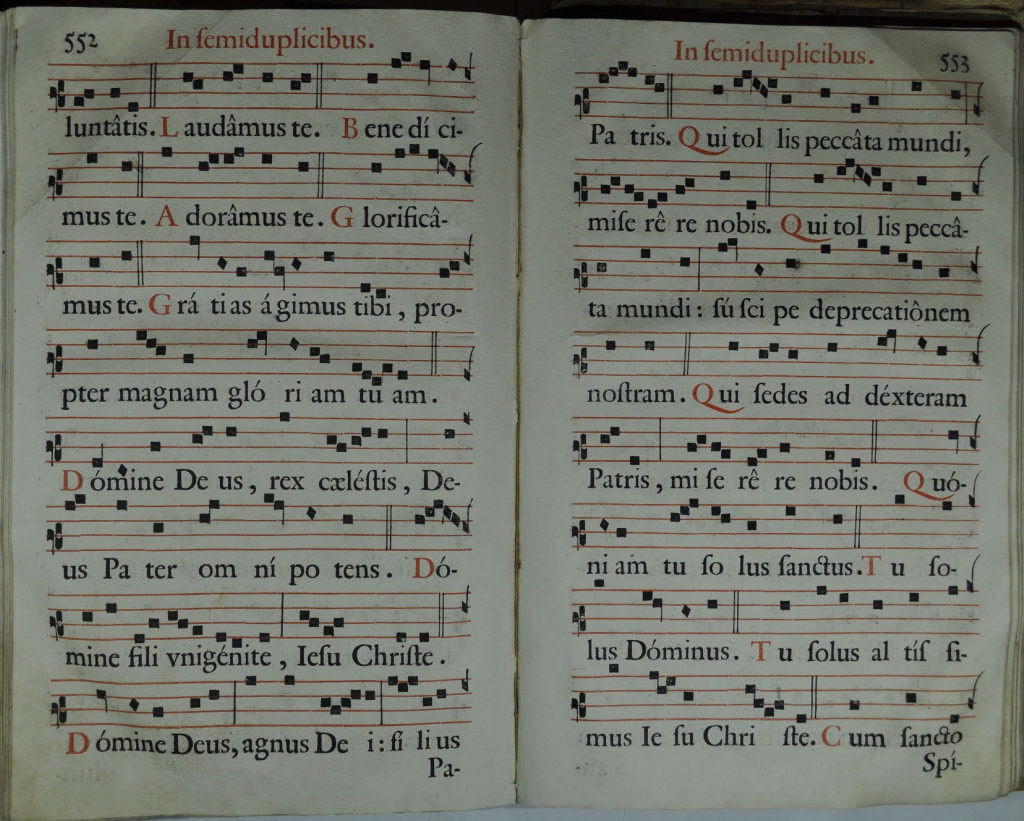 552
In ſemiduplicibus.
luntâtis. L audâmus te. B ene dí ci-
mus te. A dorâmus te. G lorificâ-
mus te. G rá ti as á gimus tibi, pro-
pter magnam gló ri am tu am.
D ómine De us, rex cæléſtis, De-
us Pa ter om ní po tens. Dó-
mine fili vnigénite, Ieſu Chriſte.
D ómine Deus, agnus De i: fi li us
Pa-
In ſemiduplicibus.
553
Pa tris. Q ui tol lis peccâta mundi,
miſe rê re nobis. Q ui tol lis peccâ-
ta mundi: ſú ſci pe deprecatiônem
noſtram. Q ui ſedes ad déxteram
Patris, mi ſe rê re nobis. Q uó-
ni am tu ſo lus ſanctus. T u ſo-
lus Dóminus. T u ſolus al tíſ ſi-
mus Ie ſu Chri ſte. C um ſancto
Spí-